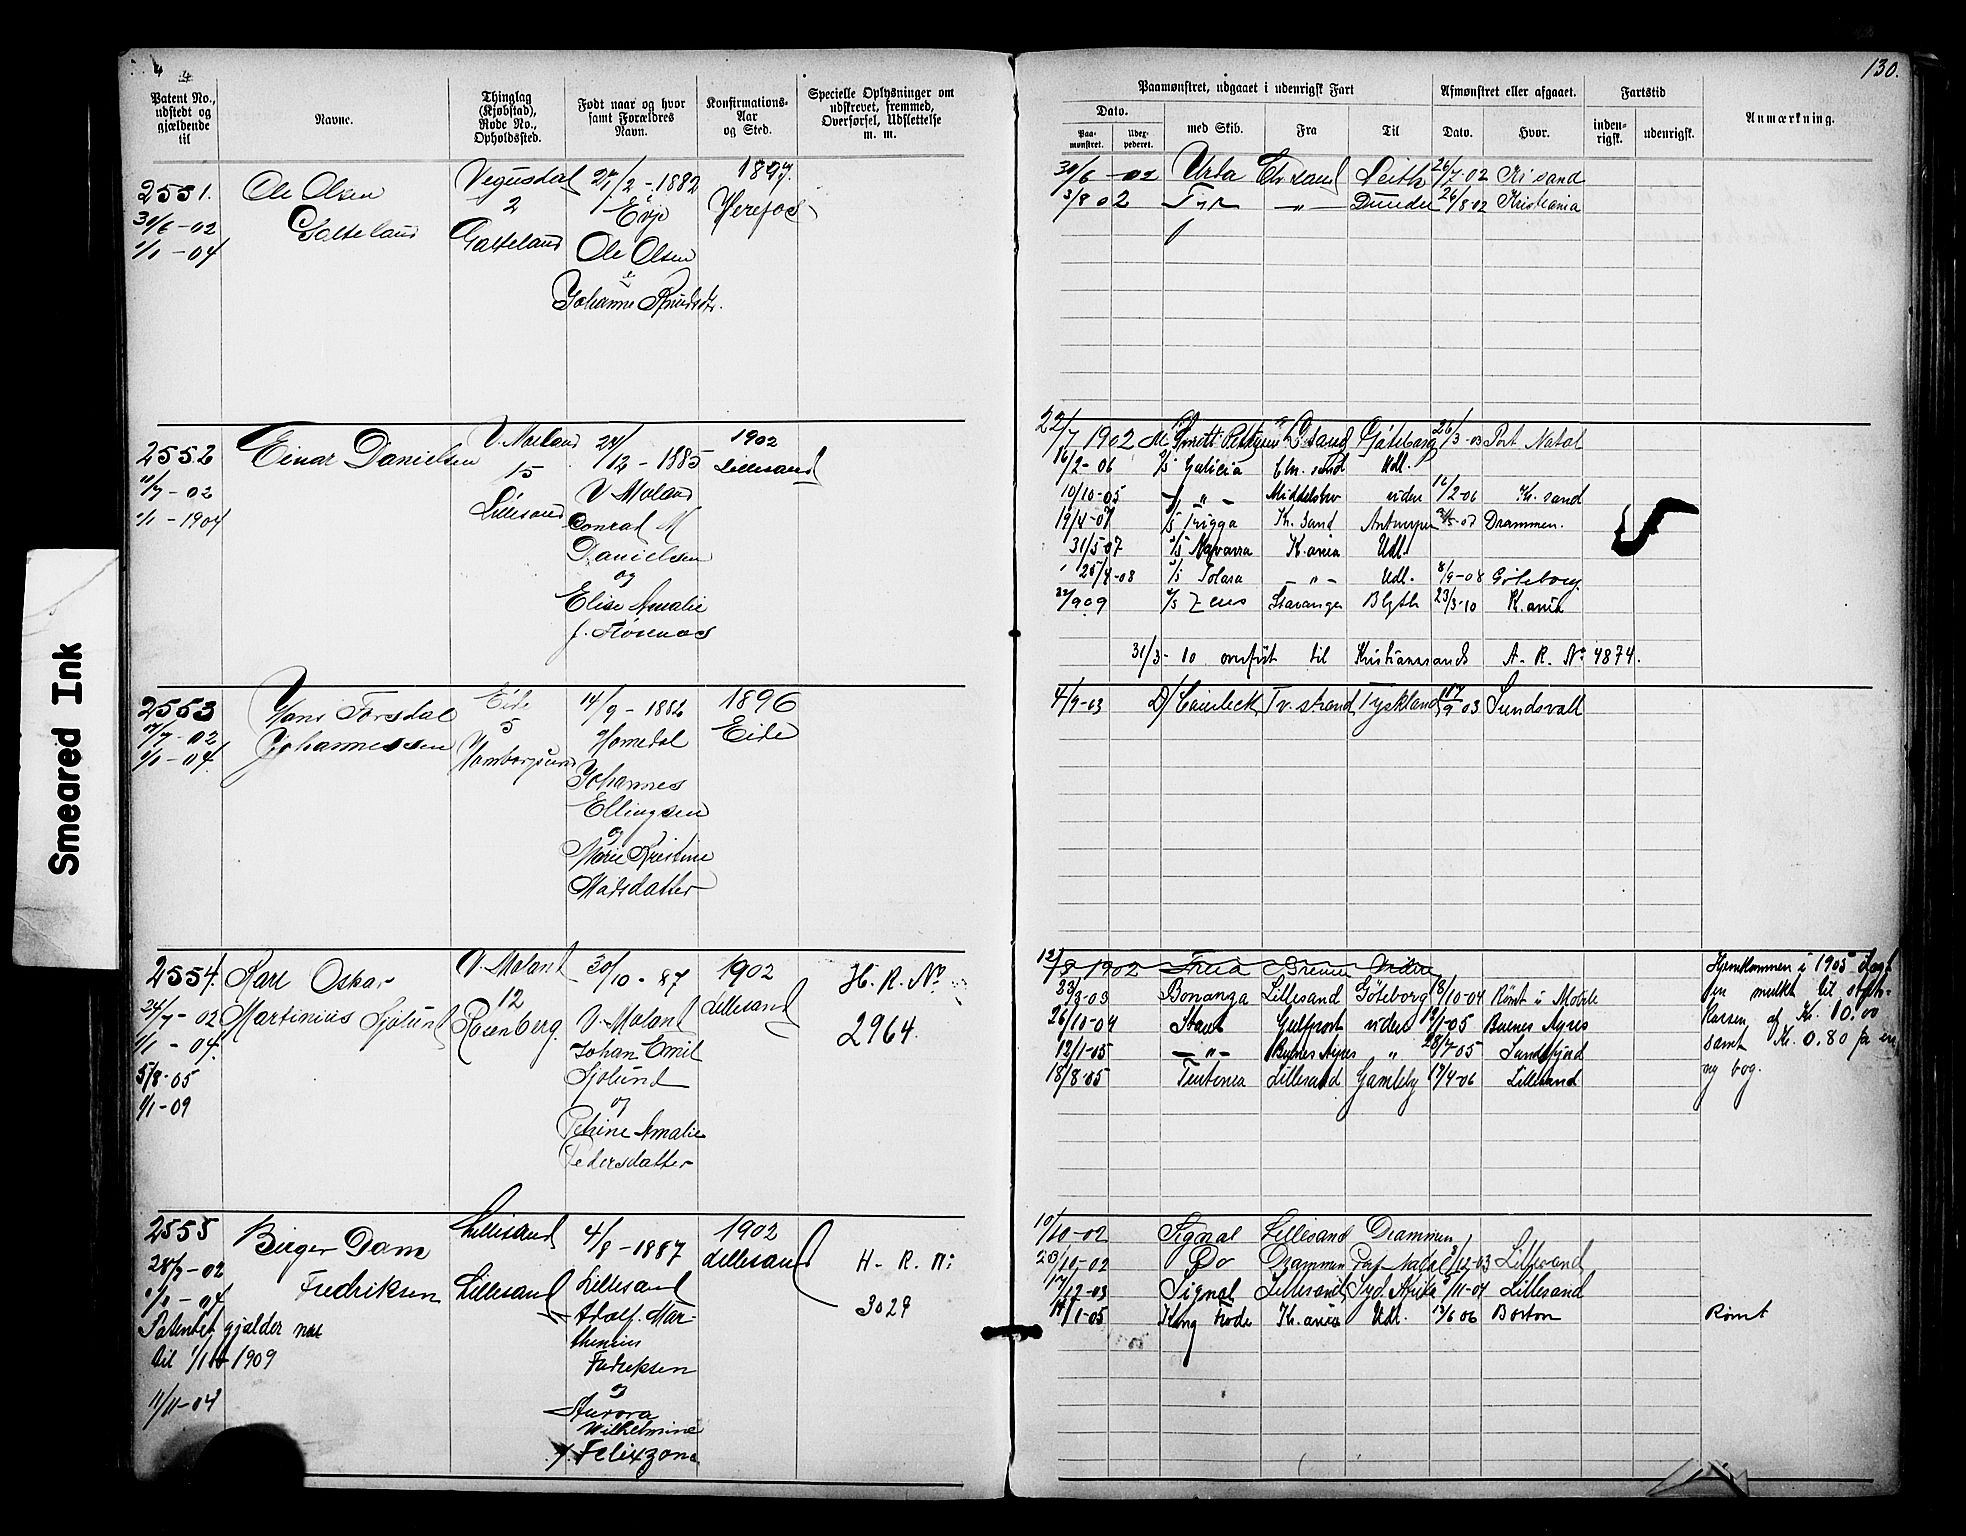 130.
Smeared Ink
Patent No., udstedt og gjældende til
Navne.
Thinglag (Kjøbstad), Rode No., Opholdssted.
Født naar og hvor samt Forældres Navn.
Konfirmations-Aar og Sted.
Specielle Oplysninger om udskrevet, fremmed, Overførsel, Udslettelse m. m.
Paamønstret, udgaaet i udenrigsk Fart
Dato.
Paa-mønstret.
Udex-pederet.
med Skib.
Fra
Til
Afmønstret eller afgaaet.
Dato.
Hvor.
Fartstid
inden-rigsk.
udenrigsk.
Anmærkning.
2551.
30/6-02
1/1-04
Ole Olsen
Galteland
Vegusdal
2
Galteland
1882
Ole Olsen
Johanne Knudsdtr.
1897.
Herefos
30/6-02 Urda Chr sand Leith 26/7-02 Kr sand
3/8 02 Tyr -"- Dundee 26/8-02 Kristiania
2552
11/7-02
1/1-1904
Einar Danielsen
V. Moland
15
Lillesand
24/12-1885
V Moland
Conrad M
Danielsen
og
Elise Amalie
1902
Lillesand
22/7 1902 Göteborg 26/3-03 Port Natal
16/2-06 Galicia Chr. sand Udl.
10/10-05 -"- 16/2-06 Kr. sand
19/4-07 Trigga Kr. Sand Antwerpen Drammen.
31/5-07 Navarra K.ania Udl.
25/4-08 -"- Udl. 8/9-08 Göteborg
Zeus Stavanger Blyth 23/3-10 K.ania
31/3-10 overført til Kristianssands A. R. No 4874.
2553
17/7-02
1/1-04.
Hans Forsdal
Johannessen
Eide
5
Homborgsund
14/9-1882
Homedal
Johannes
Ellingsen
og
Marie Kristine
Madsdatter
1896
Eide
4/9-03 Tv.strand Tyskland 03 Sundsvall
2554.
24/7-02
1/1-04.
5/8-05
1/1-09
Karl Oskar
Martinius Sjölund
V. Moland
12
Rosenberg
30/10-87
V. Moland
Johan Emil
Sjölund
og
Petrine Amalie
Pedersdatter
1902
Lillesand
H. R. No
2964.
1902 Freia Bremen
23/3-03 Bonanza Lillesand Göteborg 18/10-04 Rømt i Mobile
26/10-04 Gulfport videre 12/1-05 Buenes Ayres
12/1-05 -"- Buenes Ayres " 28/7-05
18/8-05 Teutonia Lillesand Gamleby 17/4-06 Lillesand
Hjemkommen i 1905
mulkt til
kassen af Kr. 10.00
samt Kr. 0.80 for en
ny bog.
2555
28/7-02
1/1-04
Patentet gjælder nu
til 1/1 1909
11/11-04
Birger Dam
Fredriksen
Lillesand
Lillesand
4/8-1887
Lillesand
Adolf Mar-
thinius
Fredriksen
og
Aurora
Wilhelmine
f. Felixzona
1902
Lillesand
H. R. N:
3029
10/10-02 Signal Lillesand Drammen
23/10-02 Do Drammen Port Natal 12-03 Lillesand
17/12-03 Signal Lillesand Syd Afrika 11-04 Lillesand
1-05 Kong Frode Kr. ania Udl. 6 06 Boston
Rømt